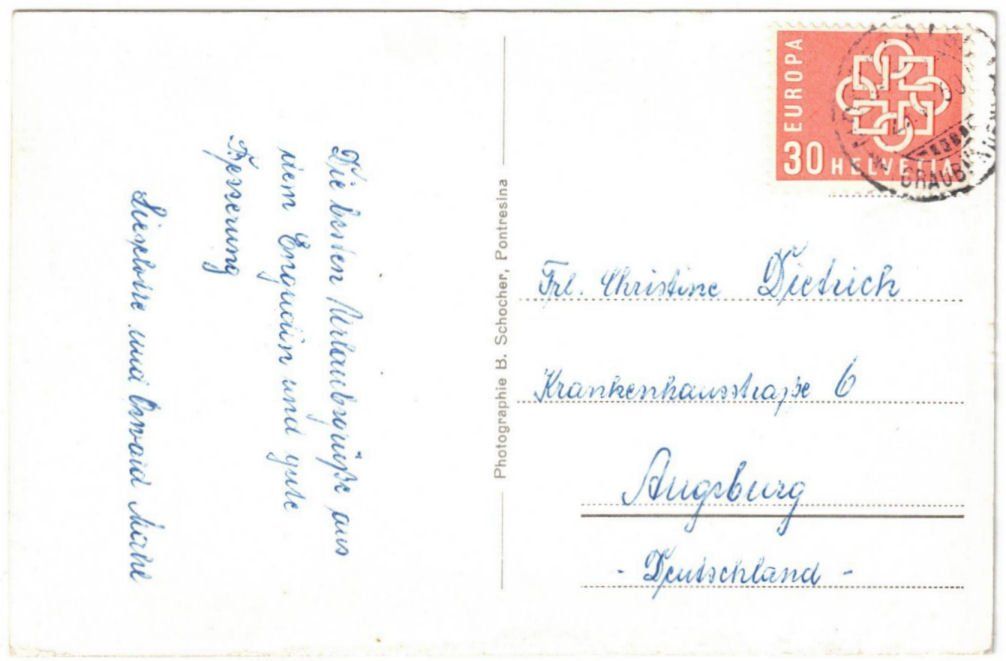 Die besten Urlaubsgrüße aus
dem Engadin und gute
Besserung
Lieselotte und Oswald
Photographie B. Schocher, Pontresina
EUROPA
30 HELVETIA
GRAUB
Frl. Christine Dietrich
Krankenhausstraße 6
Augsburg
- Deutschland -